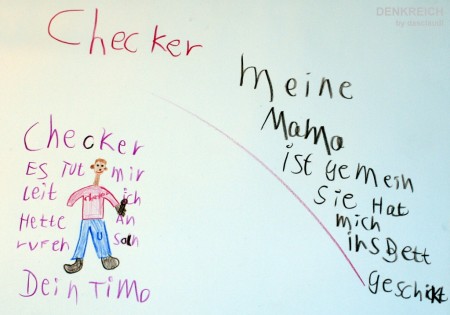 DENKREICH
Checker
meine
Mama
ist gemein
Sie Hat
mich
ins Bett
geschickt
Checker
ES TUT mir
Leit ich
Hette An
rufen Soln
Dein Timo